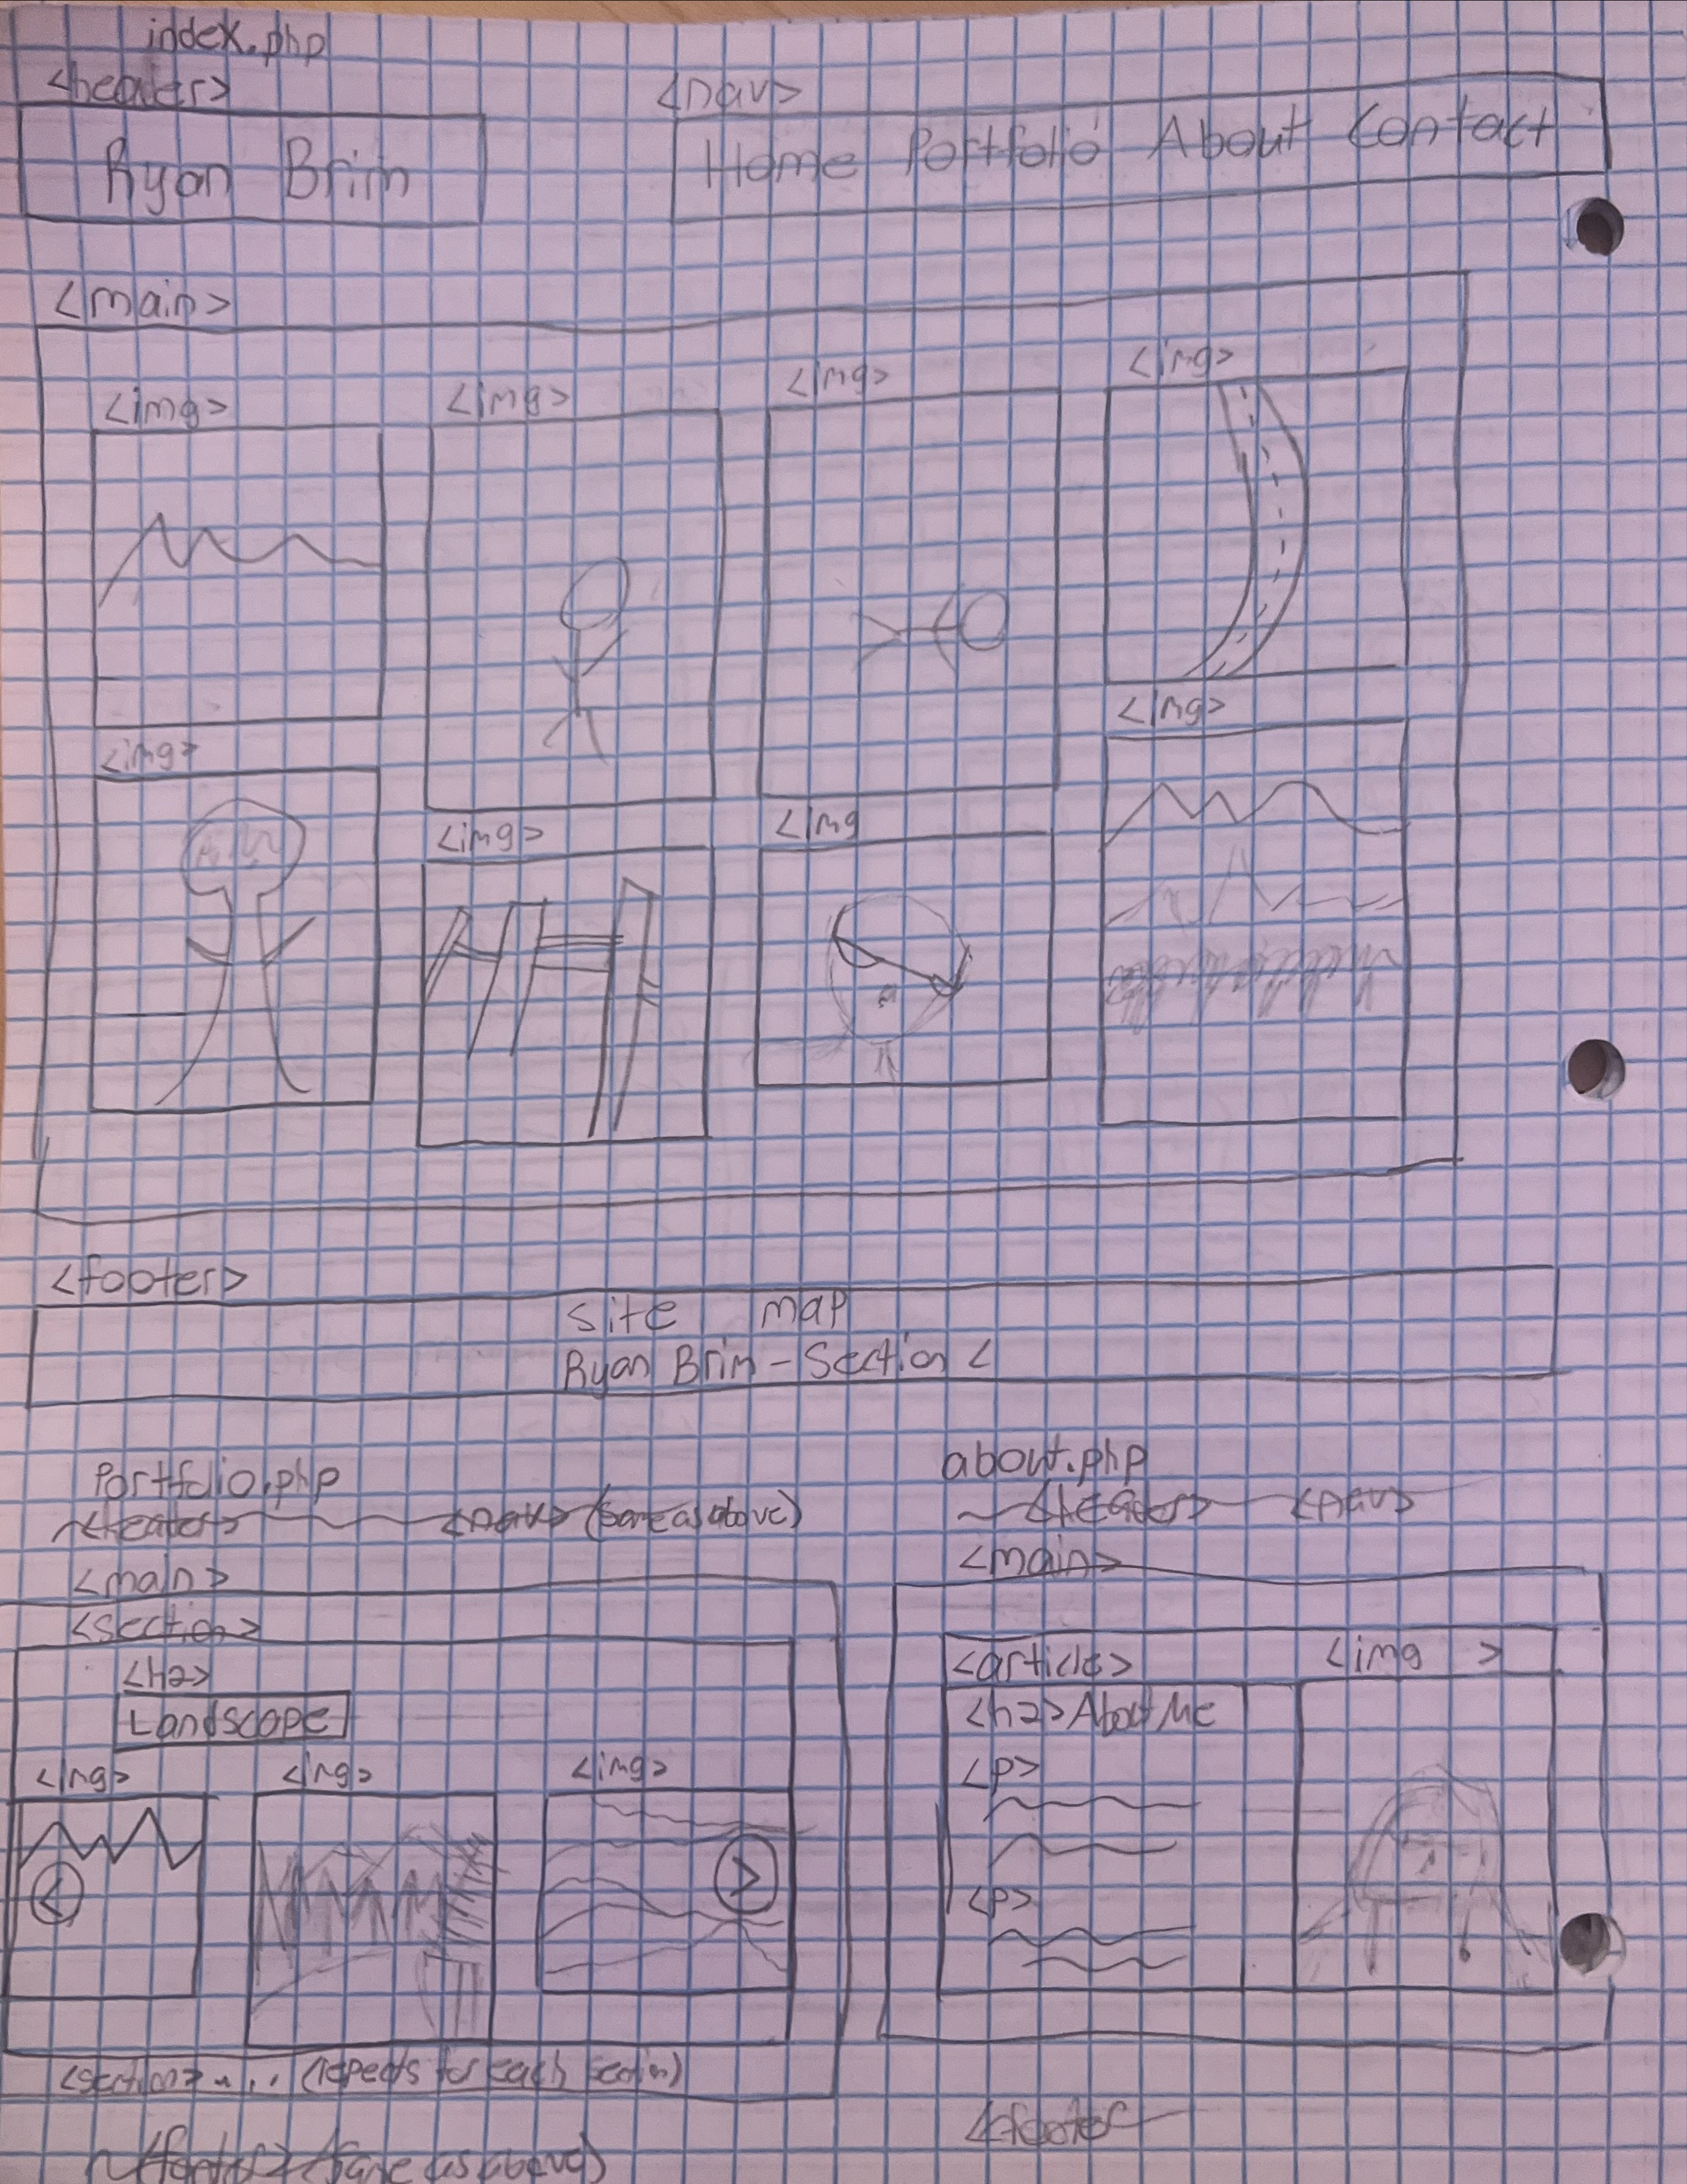 index.php
<header>
<nav>
Ryan Brim
Home Portfolio About Contact
<main>
<img>
<img>
<img>
<img>
<img>
<img>
<img
<img>
<footer>
site map
Ryan Brim - Section
Portfolio.php
<header> <nav> (same as above)
<main>
<section>
<h2>
Landscape
<img> <img> <img>
< >
<section> .... (repeats for each section)
<footer> (same as above)
about.php
<header> <nav>
<main>
<article> <img >
<h2> About Me
<p>
<p>
<footer